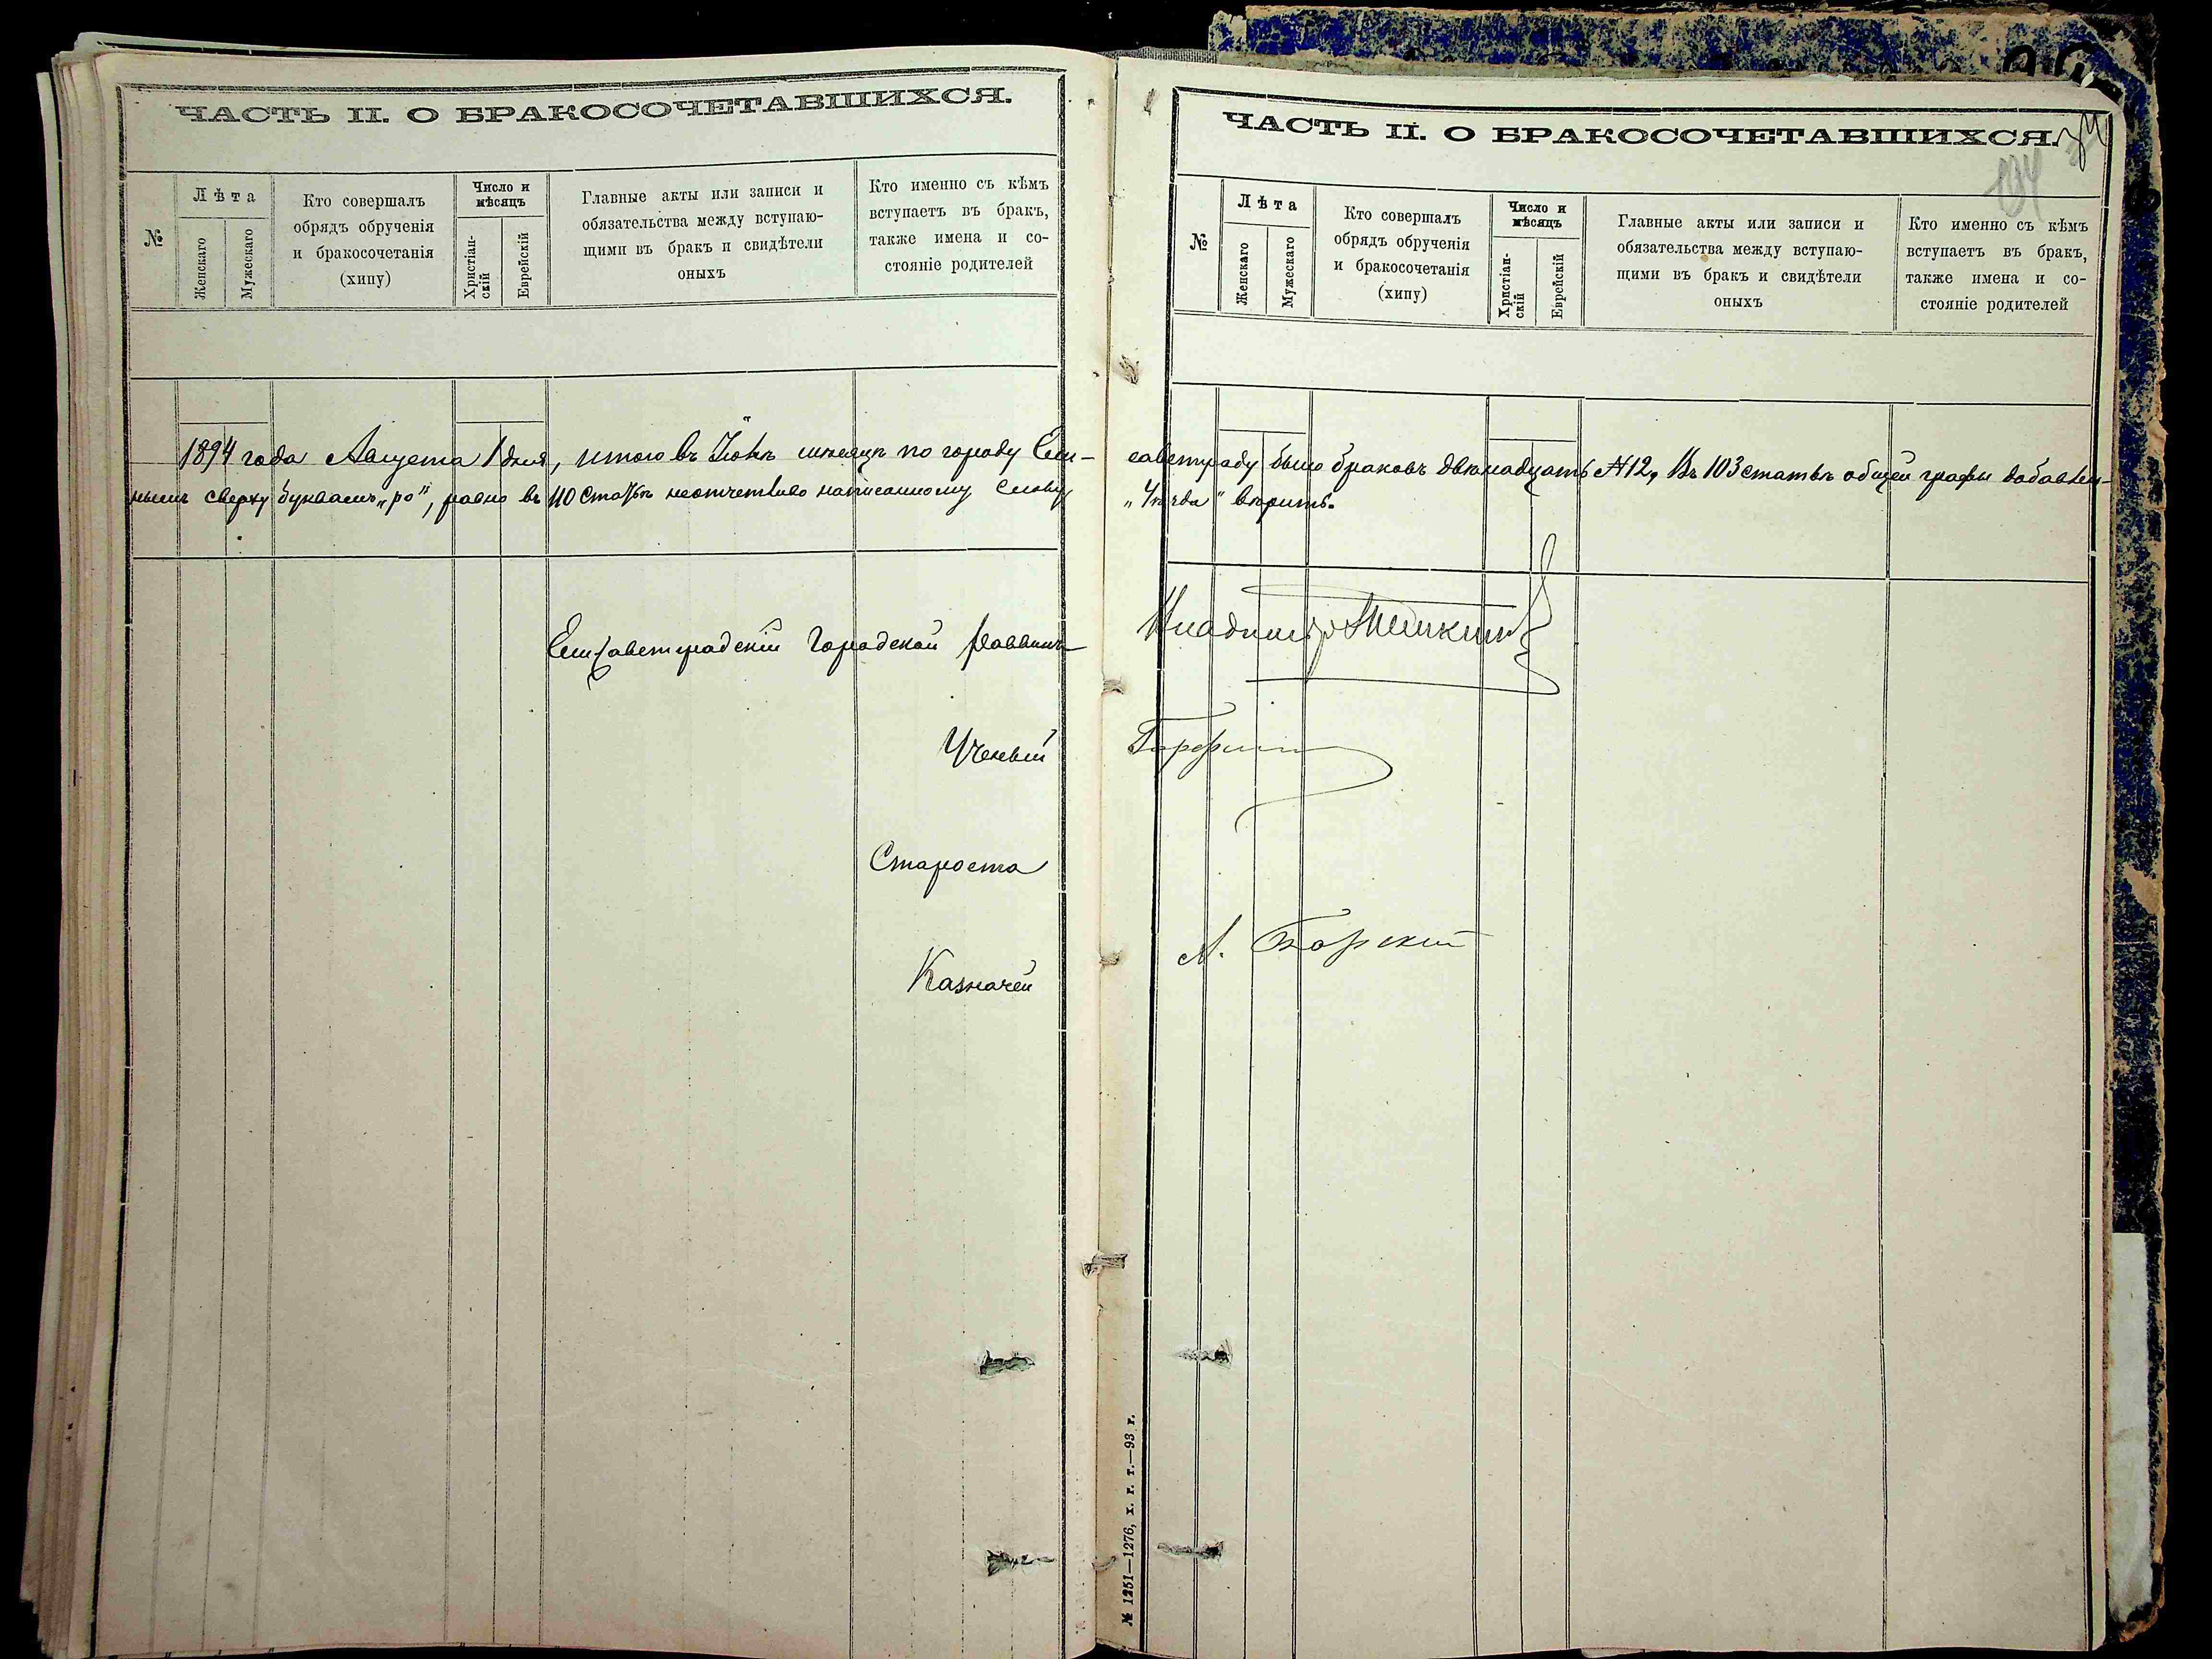 ЧАСТЬ II. О БРАКОСОЧЕТАВШИХСЯ.
№
Лѣта
Женскаго
Мужескаго
Кто совершалъ
обрядъ обрученія
и бракосочетанія
(хипу)
Число и
мѣсяцъ
Христіан-
скій
Еврейскій
Главные акты или записи и
обязательства между вступаю-
щими въ бракъ и свидѣтели
оныхъ
Кто именно съ кѣмъ
вступаетъ въ бракъ,
также имена и со-
стояніе родителей
1894 года Августа 1 дня, итого въ мѣсяцѣ по городу Ели-
нымъ сверху буквамъ „ро“, равно въ 110 статьѣ неотчетливо написанному слову
Елисаветградскій Городской Раввинъ
Ученый
Староста
Казначей
ЧАСТЬ II. О БРАКОСОЧЕТАВШИХСЯ.
№
Лѣта
Женскаго
Мужескаго
Кто совершалъ
обрядъ обрученія
и бракосочетанія
(хипу)
Число и
мѣсяцъ
Христіан-
скій
Еврейскій
Главные акты или записи и
обязательства между вступаю-
щими въ бракъ и свидѣтели
оныхъ
Кто именно съ кѣмъ
вступаетъ въ бракъ,
также имена и со-
стояніе родителей
саветграду было браковъ двѣнадцать №12, Въ 103 статьѣ общей графы добавлен-
вѣрить.
Владимиръ Темкинъ
№ 1251—1276, х. г. т.—93 г.